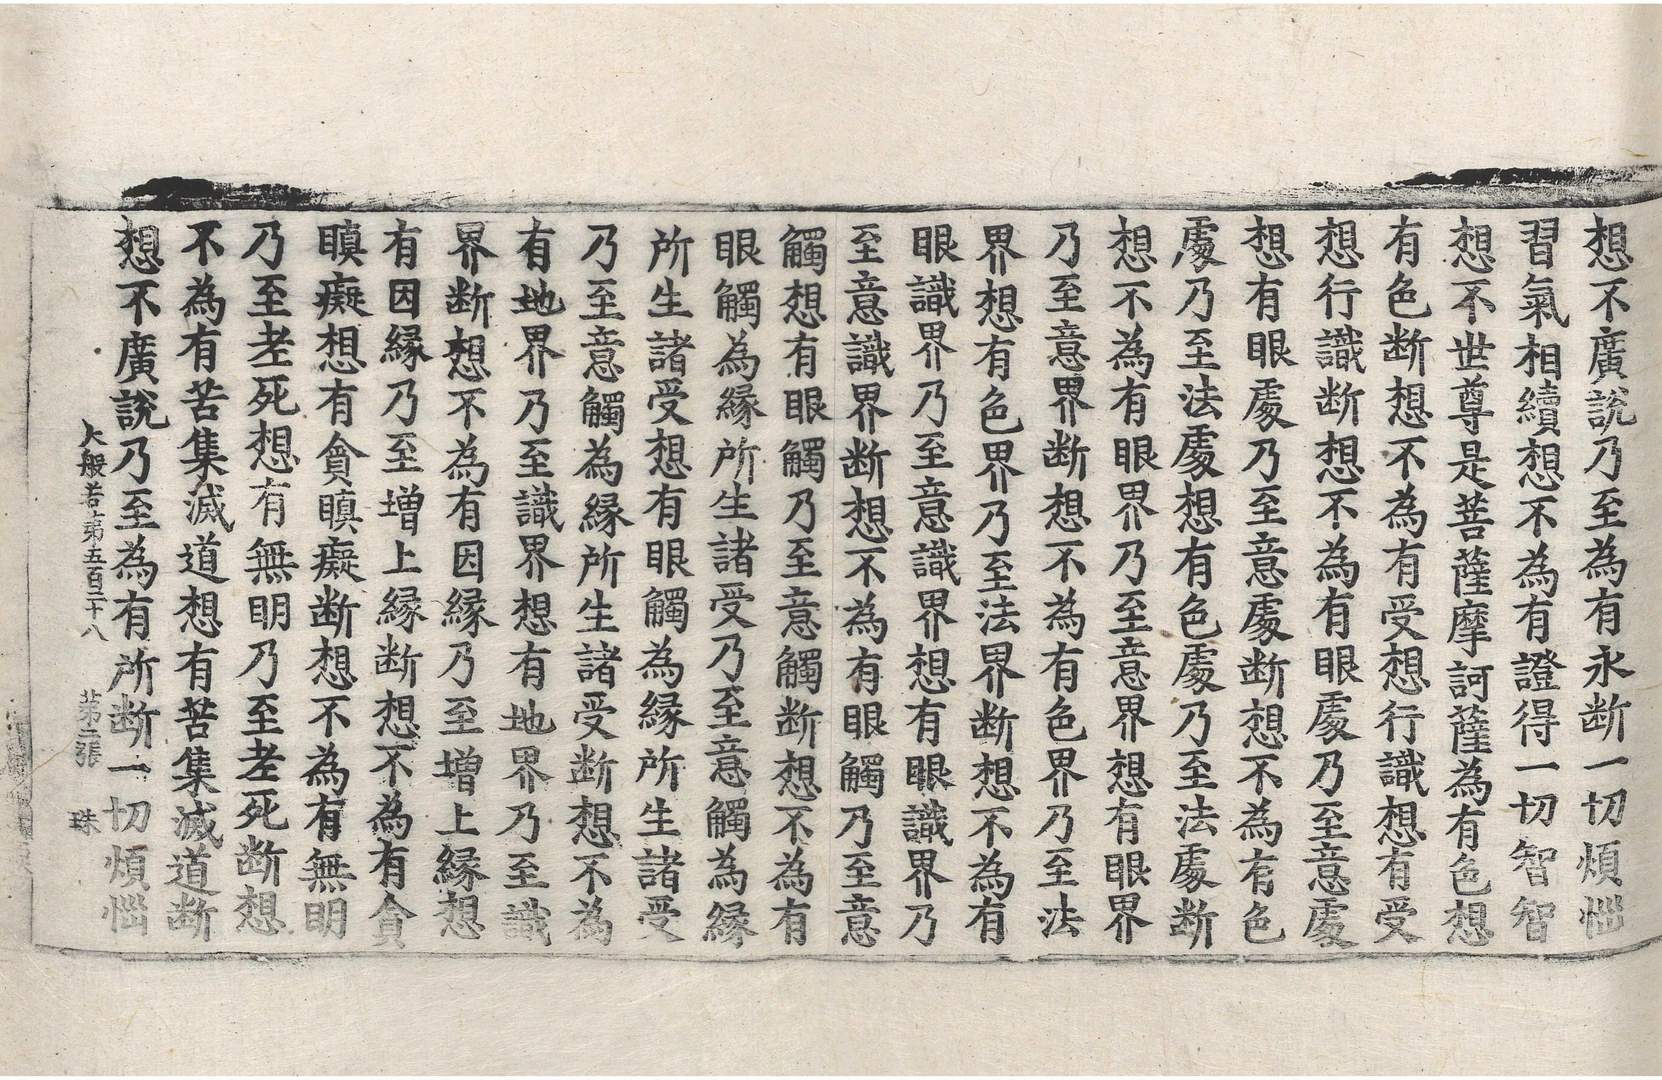 想不廣說乃至為有永断一切煩惱
習氣相續想不為有證得一切智智
想不世尊是菩薩摩訶薩為有色想
有色断想不為有受想行識想有受
想行識断想不為有眼處乃至意處
想有眼處乃至意處断想不為有色
處乃至法處想有色處乃至法處断
想不為有眼界乃至意界想有眼界
乃至意界断想不為有色界乃至法
界想有色界乃至法界断想不為有
眼識界乃至意識界想有眼識界乃
至意識界断想不為有眼觸乃至意
觸想有眼觸乃至意觸断想不為有
眼觸為緣所生諸受乃至意觸為緣
所生諸受想有眼觸為緣所生諸受
乃至意觸為緣所生諸受断想不為
有地界乃至識界想有地界乃至識
界断想不為有因緣乃至增上緣想
有因緣乃至增上緣断想不為有貪
瞋癡想有貪瞋癡断想不為有無明
乃至老死想有無明乃至老死断想
不為有苦集滅道想有苦集滅道断
想不廣說乃至為有所断一切煩惱
大般若苐五百二十八 苐二張 珠